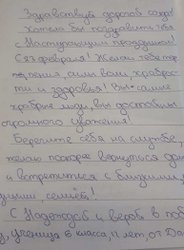 Здравствуй дорогой солдат!
Хотела бы поздравить тебя
с Наступающим праздником!
С 23 февраля! Желаю тебе тер-
пения, силы воли, храброс-
ти и здоровья! Вы самые
храбрые люди, вы достойны
огромного уважения!
Берегите себя на службе,
желаю поскорее вернуться
и встретиться с близкими,
семьёй!
С Надеждой и верой в
ученица 6 класса, лет, от